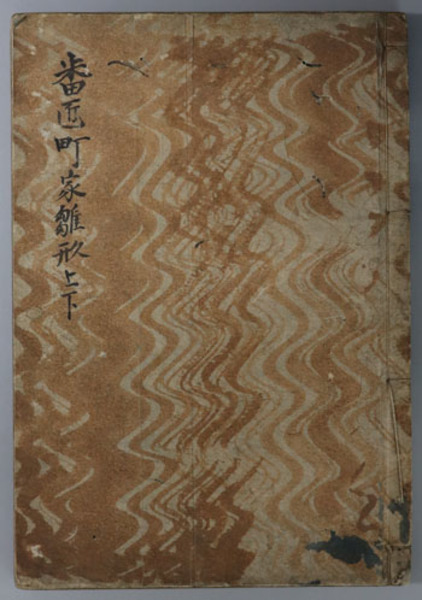 番匠町家雛形上下